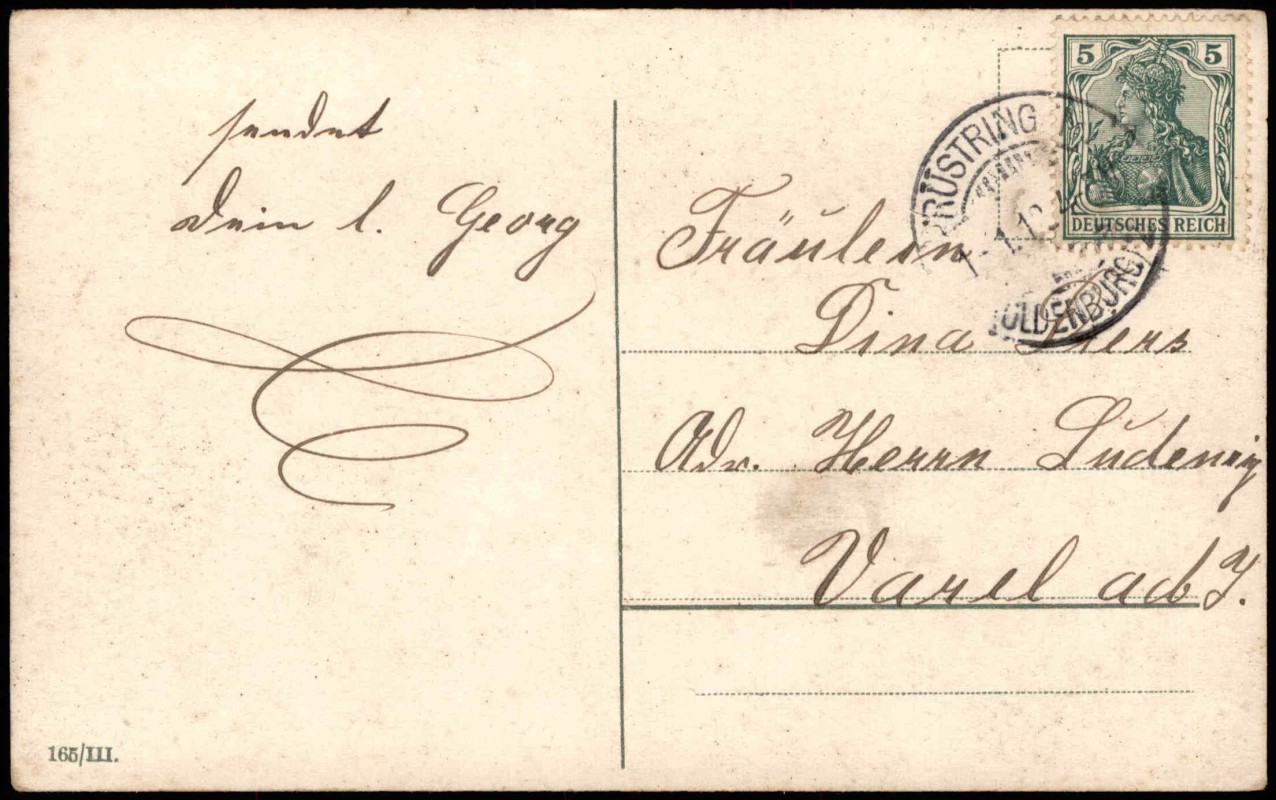 sendet
Dein l. Georg
165/III.
5 5
DEUTSCHES REICH
RÜSTRINGEN
1.1.12
OLDENBURG
Fräulein
Dina
Adr. Herrn
Varel adJ.